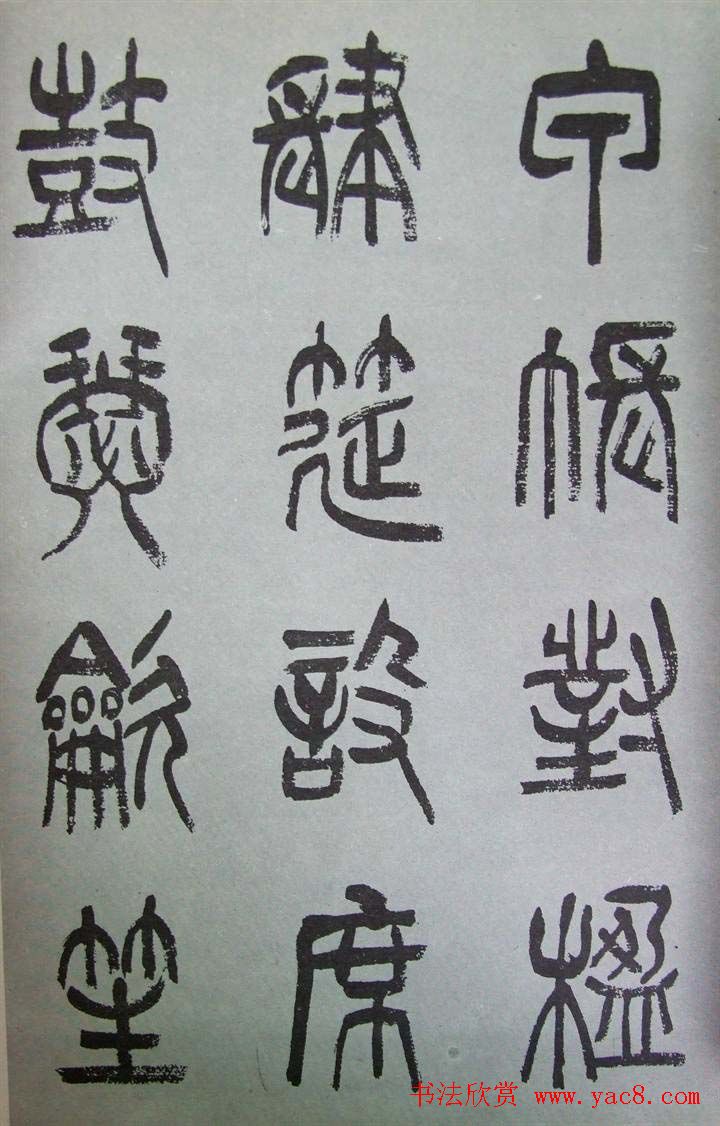 甲帳對楹
肆筵設席
鼓瑟龡笙
书法欣赏 www.yac8.com